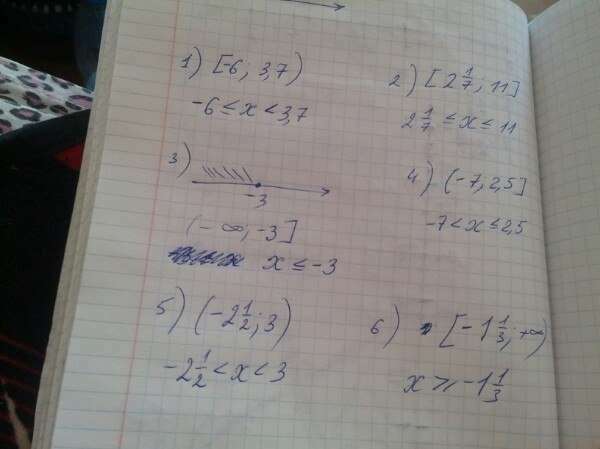 1) [-6; 3,7)
-6 ≤ x < 3,7
2) [2 1/7; 11]
2 1/7 ≤ x ≤ 11
3)
-3
(-∞; -3]
x ≤ -3
4) (-7; 2,5]
-7 < x ≤ 2,5
5) (-2 1/2; 3)
-2 1/2 < x < 3
6) [-1 1/3; +∞)
x ⩾ -1 1/3